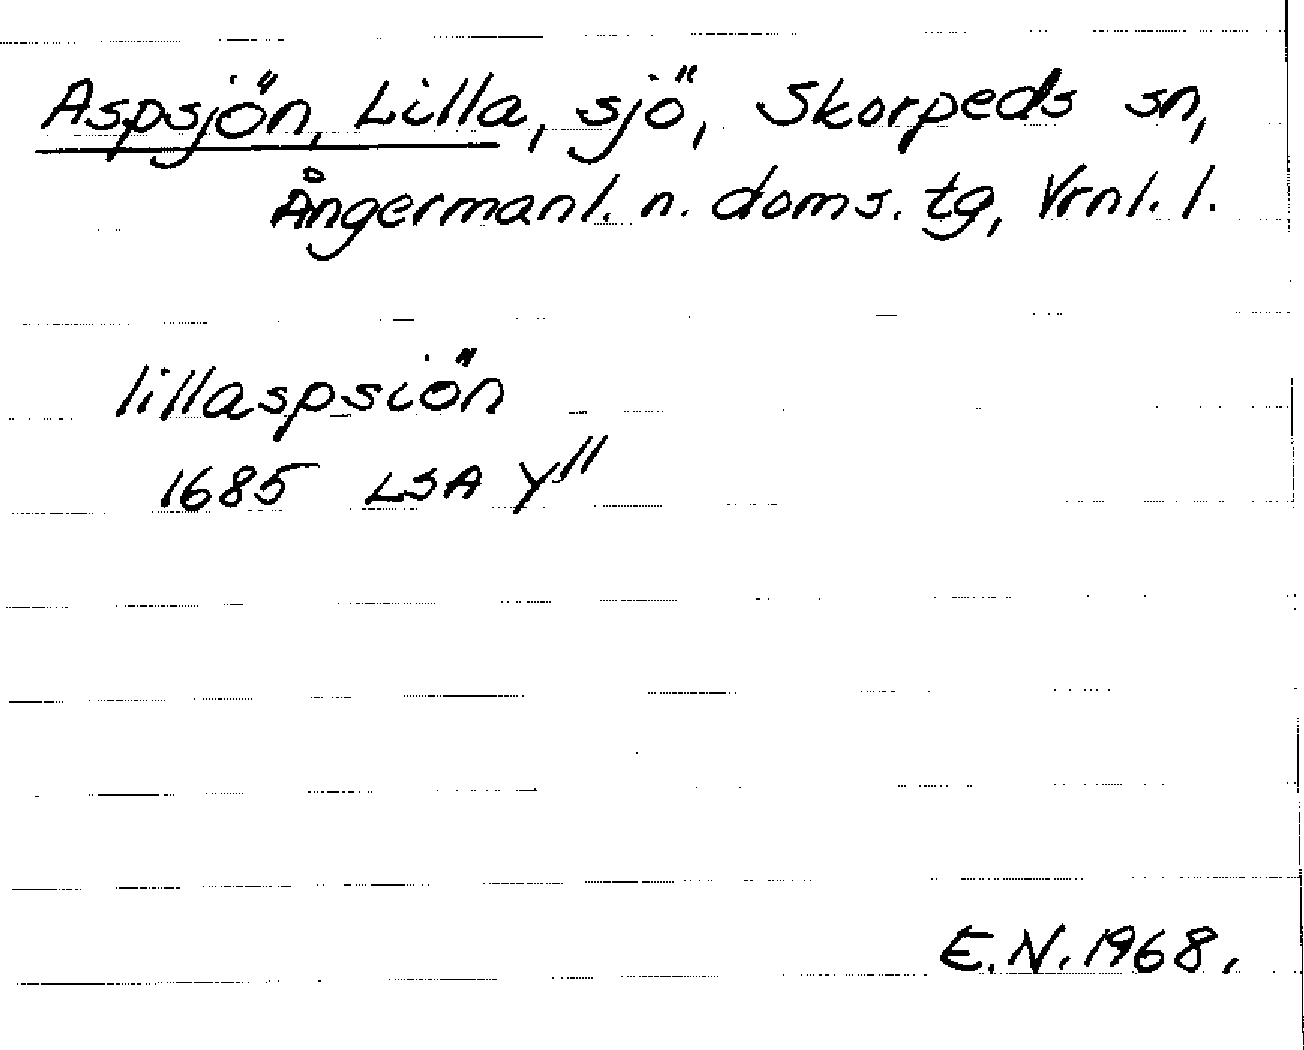 Aspsjön, Lilla, sjö, Skorpeds sn,
Ångermanl. n. doms. tg, Vrnl. l.
lillaspsiön
1685 LSA Y11
E.N. 1968.